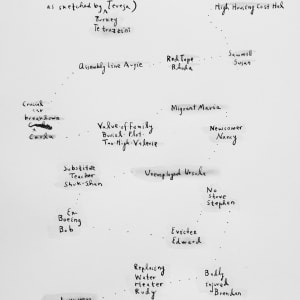 as sketched by Teresa)
Turkey
Tetrazzini
High Housing Cost Hal
Sawmill
Susan
Red Tape
Rhoda
Assembly Line Augie
Crucial
car
breakdown
Carla
Migrant Maria
Value of Family
Burial-Plot-
Too-High-Valerie
Newcomer
Nancy
Substitute
Teacher
Shuk-Shan
Unemployed Ursula
No
Stove
Stephen
Ex-
Boeing
Bob
Evictee
Edward
Replacing
Water
Heater
Rudy
Badly
injured
Brendan